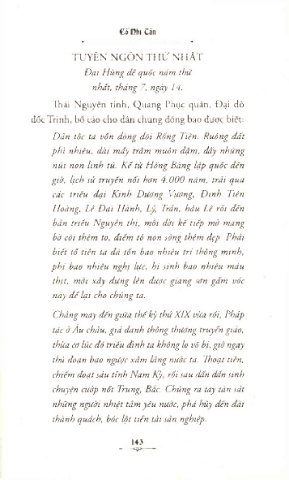 Cố Nhi Tân
TUYÊN NGÔN THỨ NHẤT
Đại Hùng đế quốc năm thứ
nhất, tháng 7, ngày 14.
Thái Nguyên tỉnh, Quang Phục quân, Đại đô
đốc Trịnh, bố cáo cho dân chúng đồng bào được biết:
Dân tộc ta vốn dòng dõi Rồng Tiên. Ruộng đất
phì nhiêu, dài mấy trăm muôn dặm, đây những
núi non linh tú. Kể từ Hồng Bàng lập quốc đến
giờ, lịch sử truyền nối hơn 4.000 năm, trải qua
các triều đại Kinh Dương Vương, Đinh Tiên
Hoàng, Lê Đại Hành, Lý, Trần, hậu Lê rồi đến
bản triều Nguyễn thị, mỗi đời kế tiếp mở mang
bờ cõi thêm to, điểm tô non sông thêm đẹp. Phải
biết tổ tiên ta đã tốn bao nhiêu trí thông minh,
phí bao nhiêu nghị lực, hi sinh bao nhiêu máu
thịt, mới xây dựng lên được giang sơn gấm vóc
này để lại cho chúng ta.
Chẳng may đến giữa thế kỷ thứ XIX vừa rồi, Pháp
tặc ở Âu châu, giả danh thông thương truyền giáo,
thừa cơ lúc đó triều đình ta không lo võ bị, giở ngay
thủ đoạn bạo ngược xâm lăng nước ta. Thoạt tiên,
chiếm đoạt sáu tỉnh Nam Kỳ, rồi sau dần dần sinh
chuyện cướp nốt Trung, Bắc. Chúng ra tay tàn sát
những người nhiệt tâm yêu nước, phá hủy đền đài
thành quách, bóc lột tiền tài sản nghiệp.
143